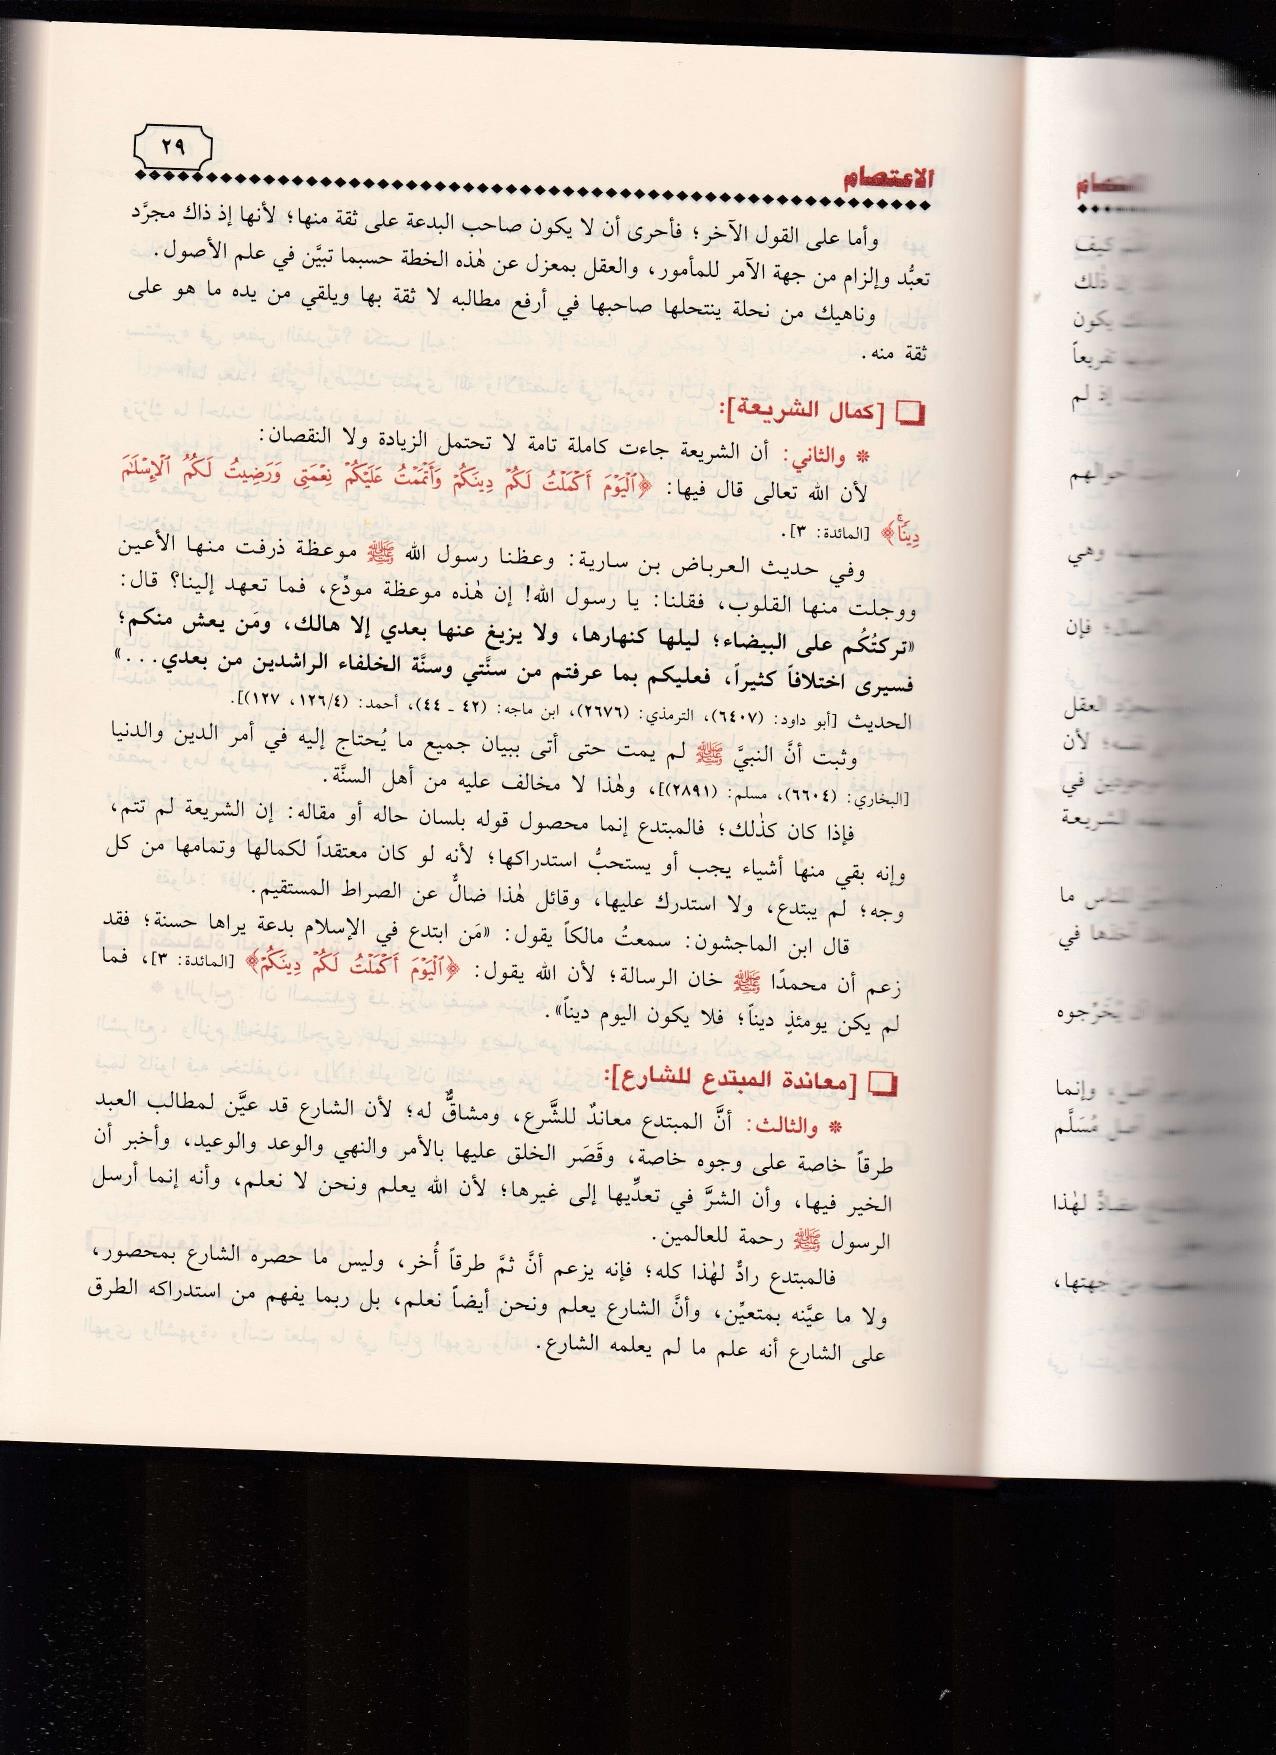 الاعتصام
٢٩
وأما على القول الآخر؛ فأحرى أن لا يكون صاحب البدعة على ثقة منها؛ لأنها إذ ذاك مجرَّد
تعبُّد وإلزام من جهة الآمر للمأمور، والعقل بمعزل عن هٰذه الخطة حسبما تبيَّن في علم الأصول.
وناهيك من نحلة ينتحلها صاحبها في أرفع مطالبه لا ثقة بها ويلقي من يده ما هو على
ثقة منه.
[كمال الشريعة]:
* والثاني: أن الشريعة جاءت كاملة تامة لا تحتمل الزيادة ولا النقصان:
لأن الله تعالى قال فيها: ﴿ٱلْيَوْمَ أَكْمَلْتُ لَكُمْ دِينَكُمْ وَأَتْمَمْتُ عَلَيْكُمْ نِعْمَتِى وَرَضِيتُ لَكُمُ ٱلْإِسْلَٰمَ
دِينًا﴾ [المائدة: ٣].
وفي حديث العرباض بن سارية: وعظنا رسول الله ﷺ موعظة ذرفت منها الأعين
ووجلت منها القلوب، فقلنا: يا رسول الله! إن هٰذه موعظة مودِّع، فما تعهد إلينا؟ قال:
«تركتُكُم على البيضاء؛ ليلها كنهارها، ولا يزيغ عنها بعدي إلا هالك، ومَن يعش منكم؛
فسيرى اختلافاً كثيراً، فعليكم بما عرفتم من سنَّتي وسنَّة الخلفاء الراشدين من بعدي...»
الحديث [أبو داود: (٦٤٠٧)، الترمذي: (٢٦٧٦)، ابن ماجه: (٤٢ ـ ٤٤)، أحمد: (١٢٦/٤، ١٢٧)].
وثبت أنَّ النبيَّ ﷺ لم يمت حتى أتى ببيان جميع ما يُحتاج إليه في أمر الدين والدنيا
[البخاري: (٦٦٠٤)، مسلم: (٢٨٩١)]، وهٰذا لا مخالف عليه من أهل السنَّة.
فإذا كان كذٰلك؛ فالمبتدع إنما محصول قوله بلسان حاله أو مقاله: إن الشريعة لم تتم،
وإنه بقي منها أشياء يجب أو يستحبُّ استدراكها؛ لأنه لو كان معتقداً لكمالها وتمامها من كل
وجه؛ لم يبتدع، ولا استدرك عليها، وقائل هٰذا ضالٌّ عن الصراط المستقيم.
قال ابن الماجشون: سمعتُ مالكاً يقول: «مَن ابتدع في الإسلام بدعة يراها حسنة؛ فقد
زعم أن محمدًا ﷺ خان الرسالة؛ لأن الله يقول: ﴿ٱلْيَوْمَ أَكْمَلْتُ لَكُمْ دِينَكُمْ﴾ [المائدة: ٣]، فما
لم يكن يومئذٍ ديناً؛ فلا يكون اليوم ديناً».
[معاندة المبتدع للشارع]:
* والثالث: أنَّ المبتدع معاندٌ للشَّرع، ومشاقٌّ له؛ لأن الشارع قد عيَّن لمطالب العبد
طرقاً خاصة على وجوه خاصة، وقَصَر الخلق عليها بالأمر والنهي والوعد والوعيد، وأخبر أن
الخير فيها، وأن الشرَّ في تعدِّيها إلى غيرها؛ لأن الله يعلم ونحن لا نعلم، وأنه إنما أرسل
الرسول ﷺ رحمة للعالمين.
فالمبتدع رادٌّ لهٰذا كله؛ فإنه يزعم أنَّ ثمَّ طرقاً أُخر، وليس ما حصره الشارع بمحصور،
ولا ما عيَّنه بمتعيِّن، وأنَّ الشارع يعلم ونحن أيضاً نعلم، بل ربما يفهم من استدراكه الطرق
على الشارع أنه علم ما لم يعلمه الشارع.
كيف
ذٰلك
يكون
تقريعاً
إذ لم
حوالهم
وهي
فإن
العقل
لأن
في
الشريعة
للناس ما
في
يُخَرِّجوه
وإنما
مُسَلَّم
لهٰذا
جهتها،